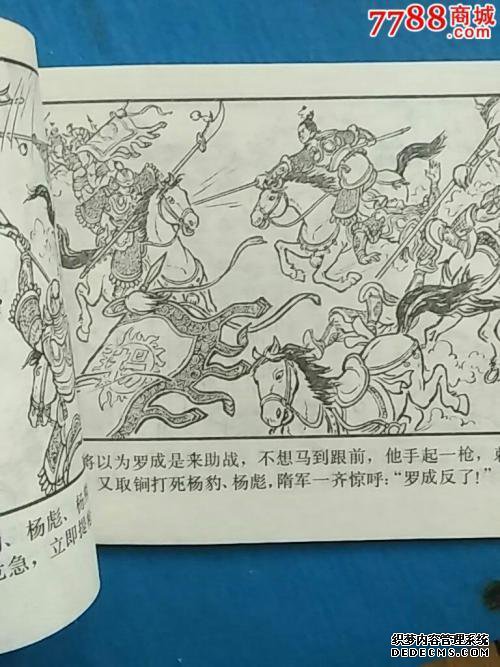 7788商城
杨
将以为罗成是来助战，不想马到跟前，他手起一枪，刺
又取锏打死杨豹、杨彪，隋军一齐惊呼：“罗成反了！”
、杨彪、杨
危急，立即提枪
织梦内容管理系统
DEDECMS.COM